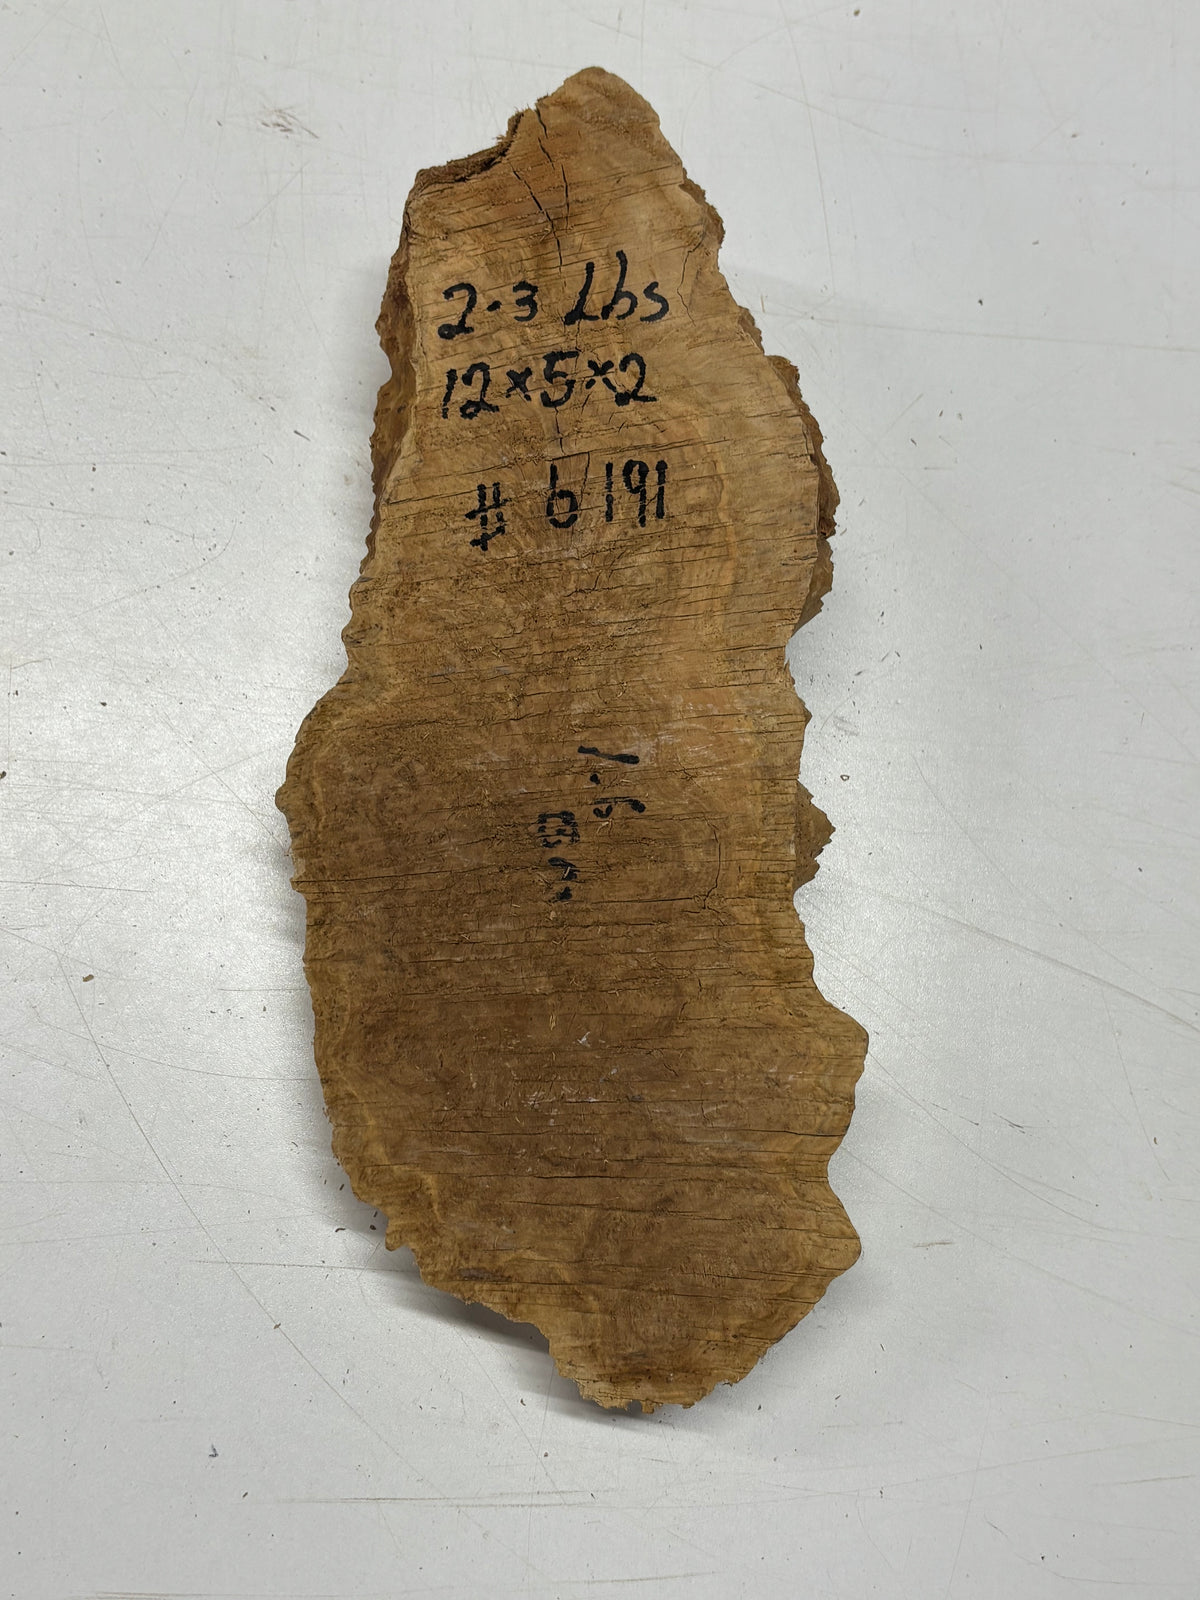 2.3 Lbs
12x5x2
# 6191